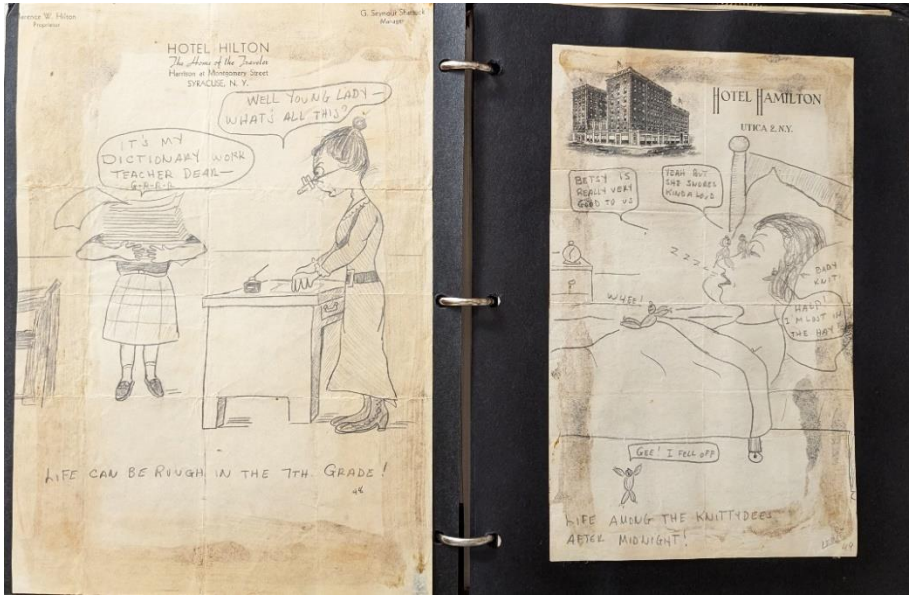 Clarence W. Hilson
Proprietor
G. Seymour
Manager
HOTEL HILTON
The Home of the Traveler
Harrison at Montgomery Street
SYRACUSE, N. Y.
WELL YOUNG LADY—
WHAT'S ALL THIS?
IT'S MY
DICTIONARY WORK
TEACHER DEAR—
G-R-R-R
LIFE CAN BE ROUGH IN THE 7TH. GRADE!
HOTEL HAMILTON
UTICA 2, N.Y.
BETSY IS
REALLY VERY
GOOD TO US
YEAH BUT
SHE SNORES
KINDA LOUD
ZZZ
BABY
KNIT
WHEE!
HALP!
I'M LOST IN
THE HAY!
GEE! I FELL OFF
LIFE AMONG THE KNITTYDEES
AFTER MIDNIGHT!